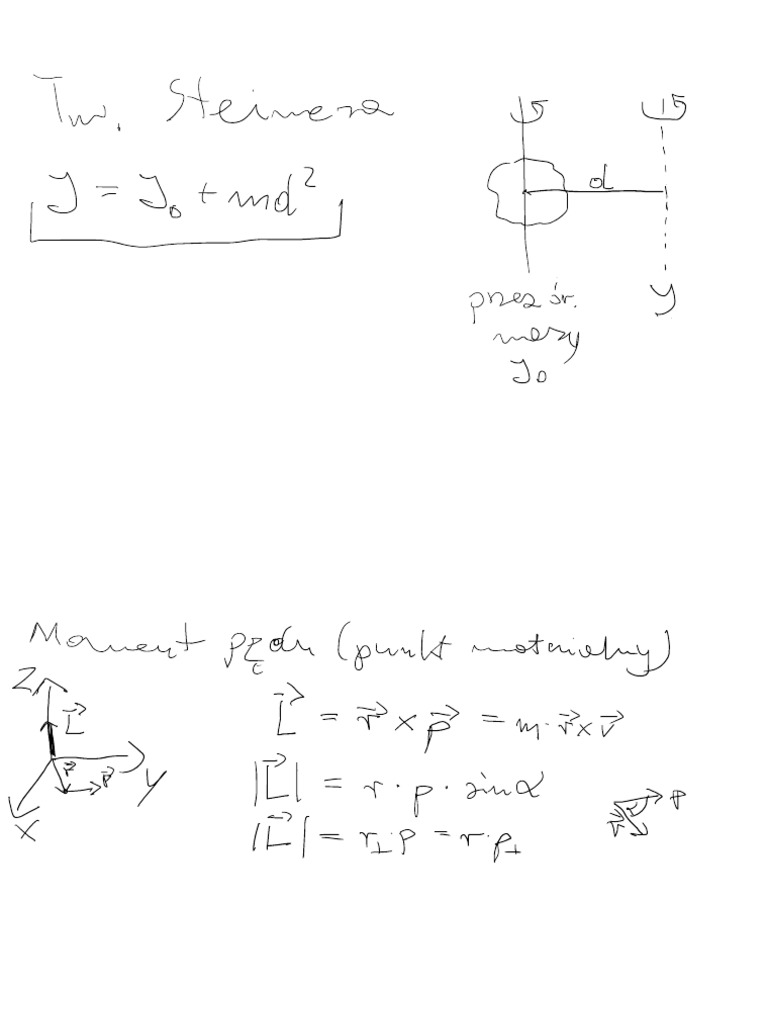 Tw. Steinera
y = y₀ + md²
d
przez śr.
masy
y₀
y
Moment pędu (punkt materialny)
Z
L⃗
r⃗
p⃗
y
x
L⃗ = r⃗ × p⃗ = m · r⃗ × v⃗
|L⃗| = r · p · sinα
|L⃗| = r⊥ p = r · p⊥
r⃗
P